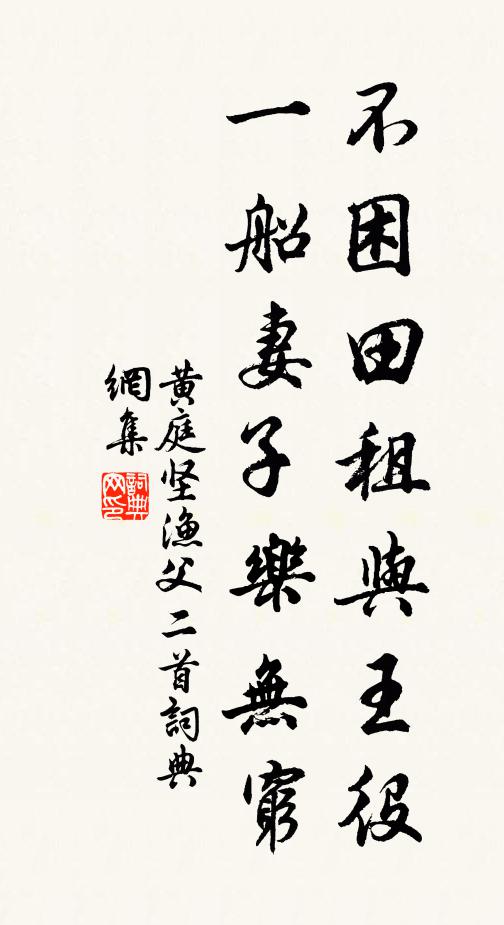 不困田租與王役
一船妻子樂無窮
黄庭坚漁父二首詞典
網集
詞典
网印